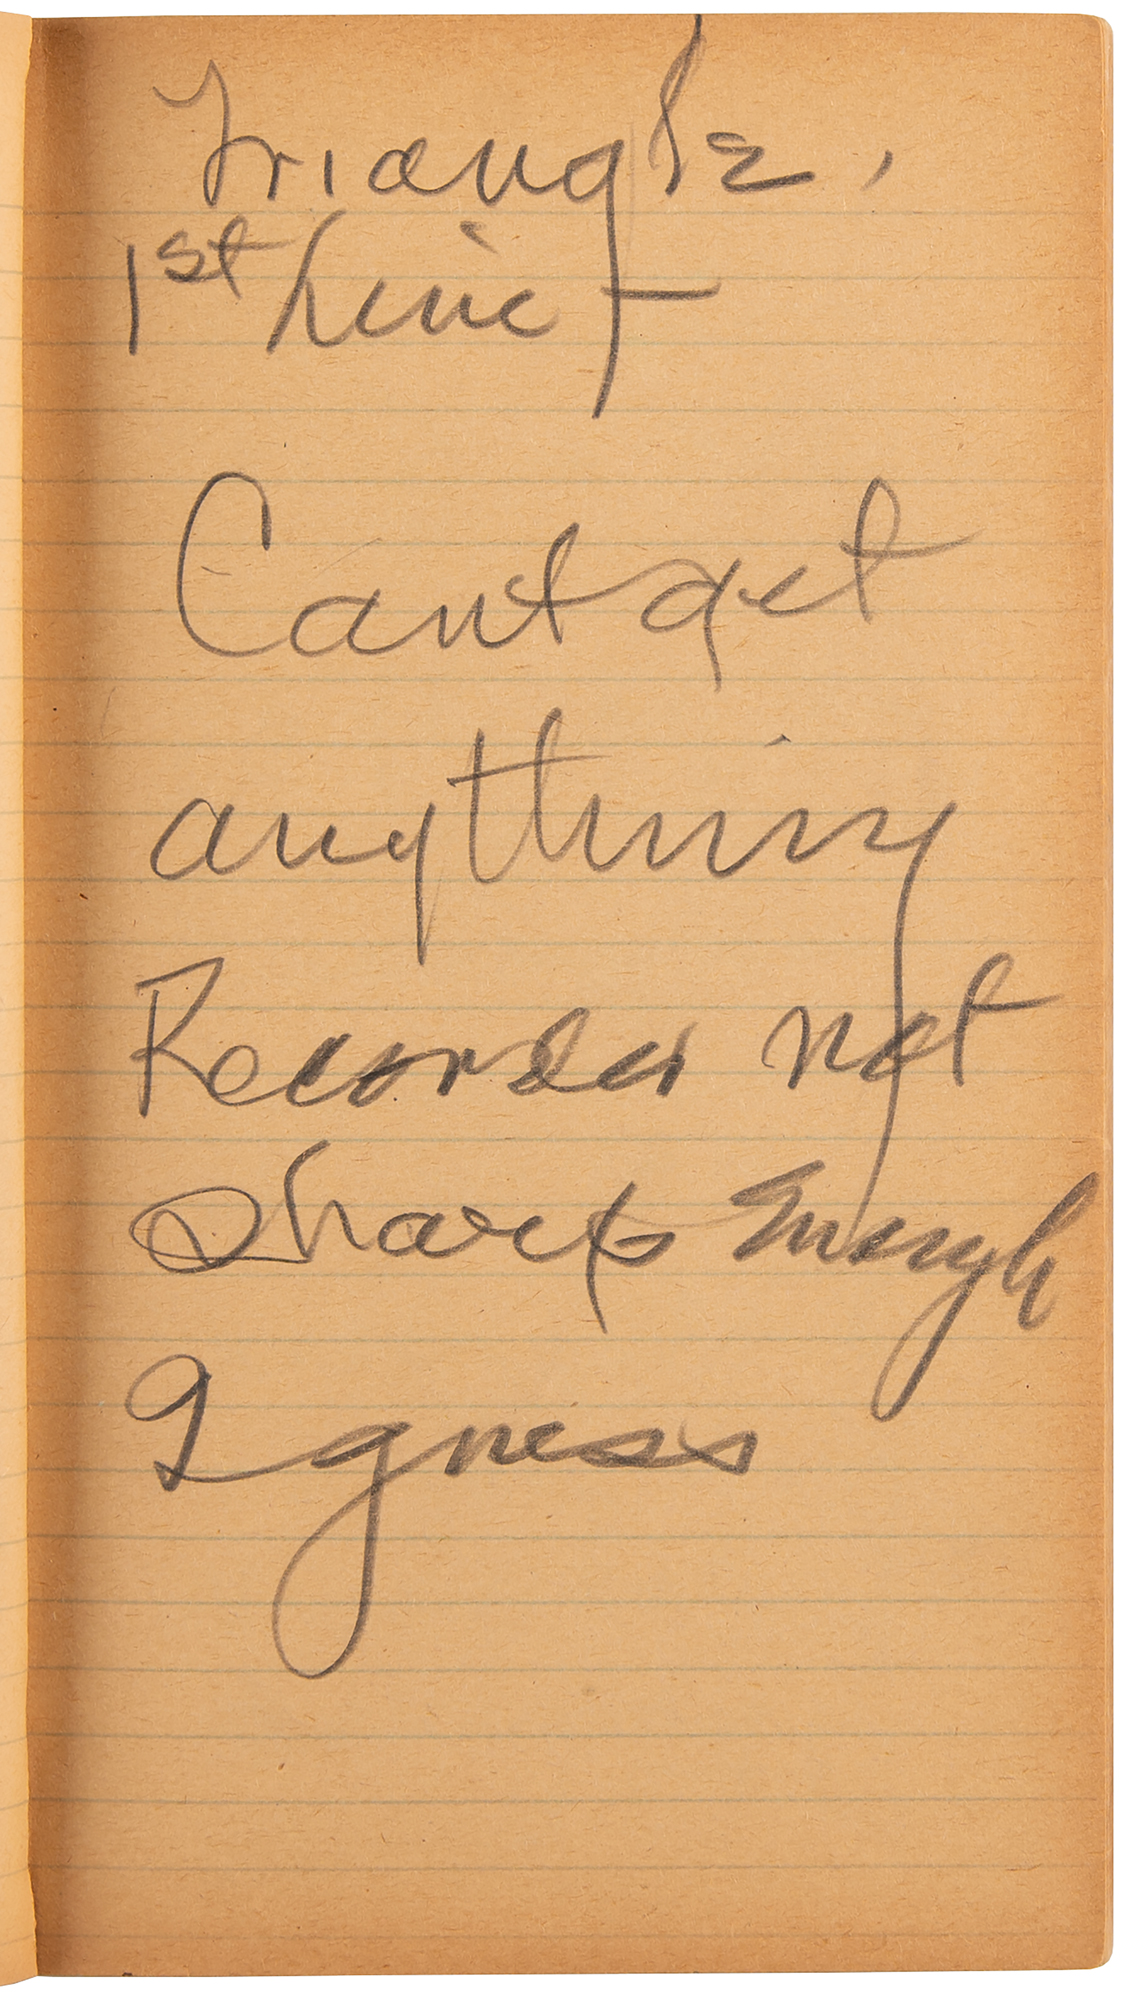 Triangle,
1st Line —
Cant get
anything
Recorder not
sharp Enough
I guess